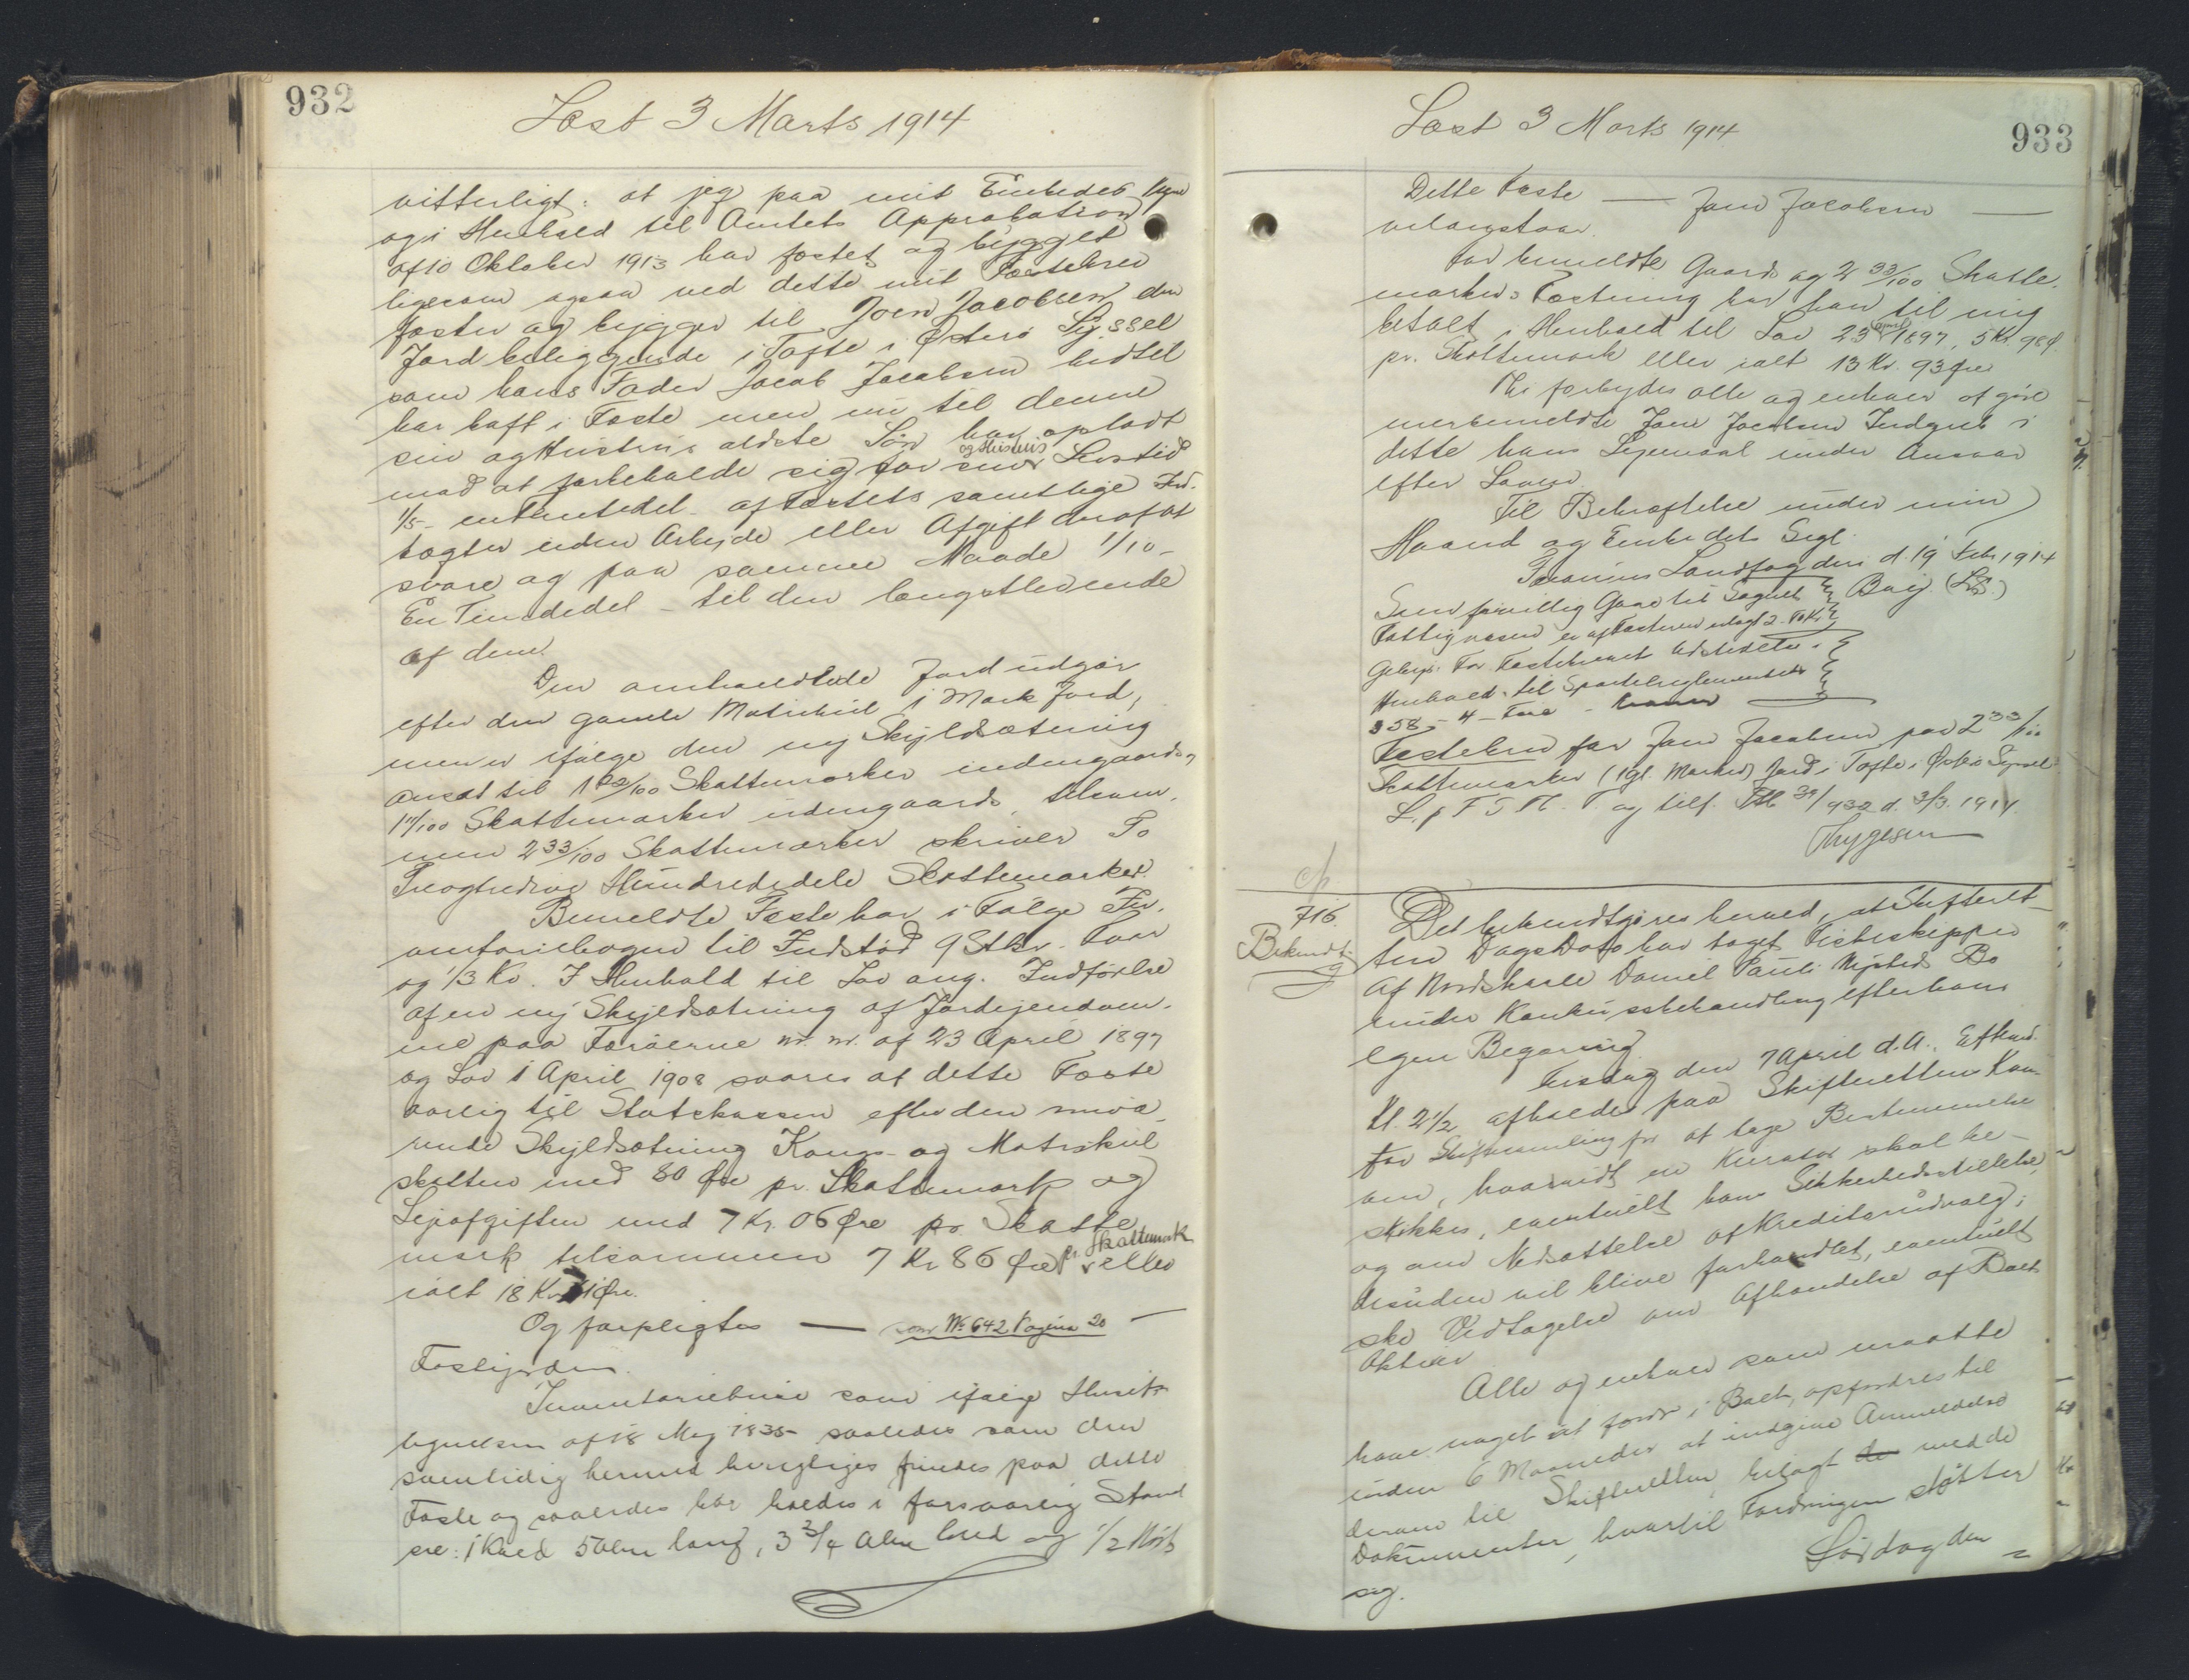 932
Læst 3 Marts 1914
vitterligt: at jeg paa mit Embedes Vegne
og i Henhold til Amtets Approbation
af 10 Oktober 1913 har fæstet og bygget
ligesom ogsaa ved dette mit Fæstebrev
fæster og bygger til Joen Jacobsen den
Jord beliggende i Tofte i Østerø Syssel
som hans Fader Jacob Jacobsen hidtil
har haft i Fæste men nu til denne
sin og Hustrus ældste Søn har opladt
mod at forbeholde sig for sin og Hustrus Livstid
1/5 - en Femtedel - af Fæstets samtlige Ind-
tægter uden Arbejde eller Afgift deraf at
svare og paa samme Maade 1/10 -
En Tiendedel - til den længstlevende
af dem.
Den omhandlede Jord udgør
efter den gamle Matrikul 1 Mark Jord,
men er ifølge den ny Skyldsætning
ansat til 1 22/100 Skattemarker indengaards,
1 11/100 Skattemarker udengaards, tilsam-
men 2 33/100 Skattemarker skriver To
Treogtredive Hundrededele Skattemarker.
Bemeldte Fæste har i Følge In-
ventariebogen til Indstød 9 Stkr. Faar
og 1/3 Ko. I Henhold til Lov ang. Indførelse
af en ny Skyldsætning af Jordejendom-
me paa Færøerne m. m. af 23 April 1897
og Lov 1 April 1908 svares af dette Fæste
aarlig til Statskassen efter den nuvæ-
rende Skyldsætning Kongs- og Matrikul
skatten med 80 Øre pr. Skattemark og
Lejeafgiften med 7 Kr. 06 Øre pr. Skatte
mark tilsammen 7 Kr 86 Øre pr. Skattemark eller
ialt 18 Kr. 31 Øre.
Og forpligtes — som No 642 Pagina 20 —
Fæstejorden.
Inventariehuse som ifølge Husets
synelsen af 18 Maj 1835 saaledes som den
samtidig hermed besigtiges findes paa dette
Fæste og saaledes bør holdes i forsvarlig Stand
ere: 1 Kved 5 Alen lang, 3 3/4 Alen bred og 1/2
933
Læst 3 Marts 1914
Dette Fæste — Joen Jacobsen —
vedangaar.
For bemeldte Gaards og 2 33/100 Skatte-
markers Fæstning har han til mig
betalt i Henhold til Lov 23 April 1897, 5 Kr. 98 Ø
pr. Skattemark eller ialt 13 Kr. 93 Øre
Thi forbydes alle og enhver at gøre
merbemeldte Joen Jacobsen Indgreb i
dette hans Lejemaal under Ansvar
efter Loven.
Til Bekræftelse under min
Haand og Embedets Segl.
Færøernes Landfogderi d. 19 Febr 1914
Som frivillig Gave til Sognets } Bøej (L.S.)
Fattigvæsen er af Fæsteren erlagt 2 - To Kr.
Gebyr for Fæstebrevet Udstedelse i
Henhold til Sportelreglementets
§ 58 - 4 - Fire - Kroner
Fæstebrev for Joen Jacobsen paa 2 33/100
Skattemarker (1 gl. Marker) Jord i Tofte i Østerø Syssel
L. p F S R. T. og tilf. Ptk 39/932 d. 3/3. 1914.
Thygesen
716.
Bekendt-
g
Det bekendtgøres herved, at Skifteret-
ten Dags Dato har taget Fiskeskipper
af Nordskaale Daniel Pauli Nysted Bo
under Konkursbehandling efter hans
egen Begæring.
Tirsdag den 7 April d. A. Efterm.
Kl. 2 1/2 afholdes paa Skifterettens Kon-
tor Skiftesamling for at tage Bestemmelse
om, hvorvidt en Kurator skal be-
skikkes, eventuelt hans Sikkerhedsstillelse,
og om Nedsættelse af Kreditorudvalg;
desuden vil blive forhandlet, eventuelt
ske Vedtagelse om Afhændelse af Boets
Aktiver
Alle og enhver som maatte
have noget at fordre i Boet, opfordres til
inden 6 Maaneder at indgive Anmeldelse
derom til Skifteretten, bilagt med de
Dokumenter, hvortil Fordringen støtter
sig.
Lørdag den